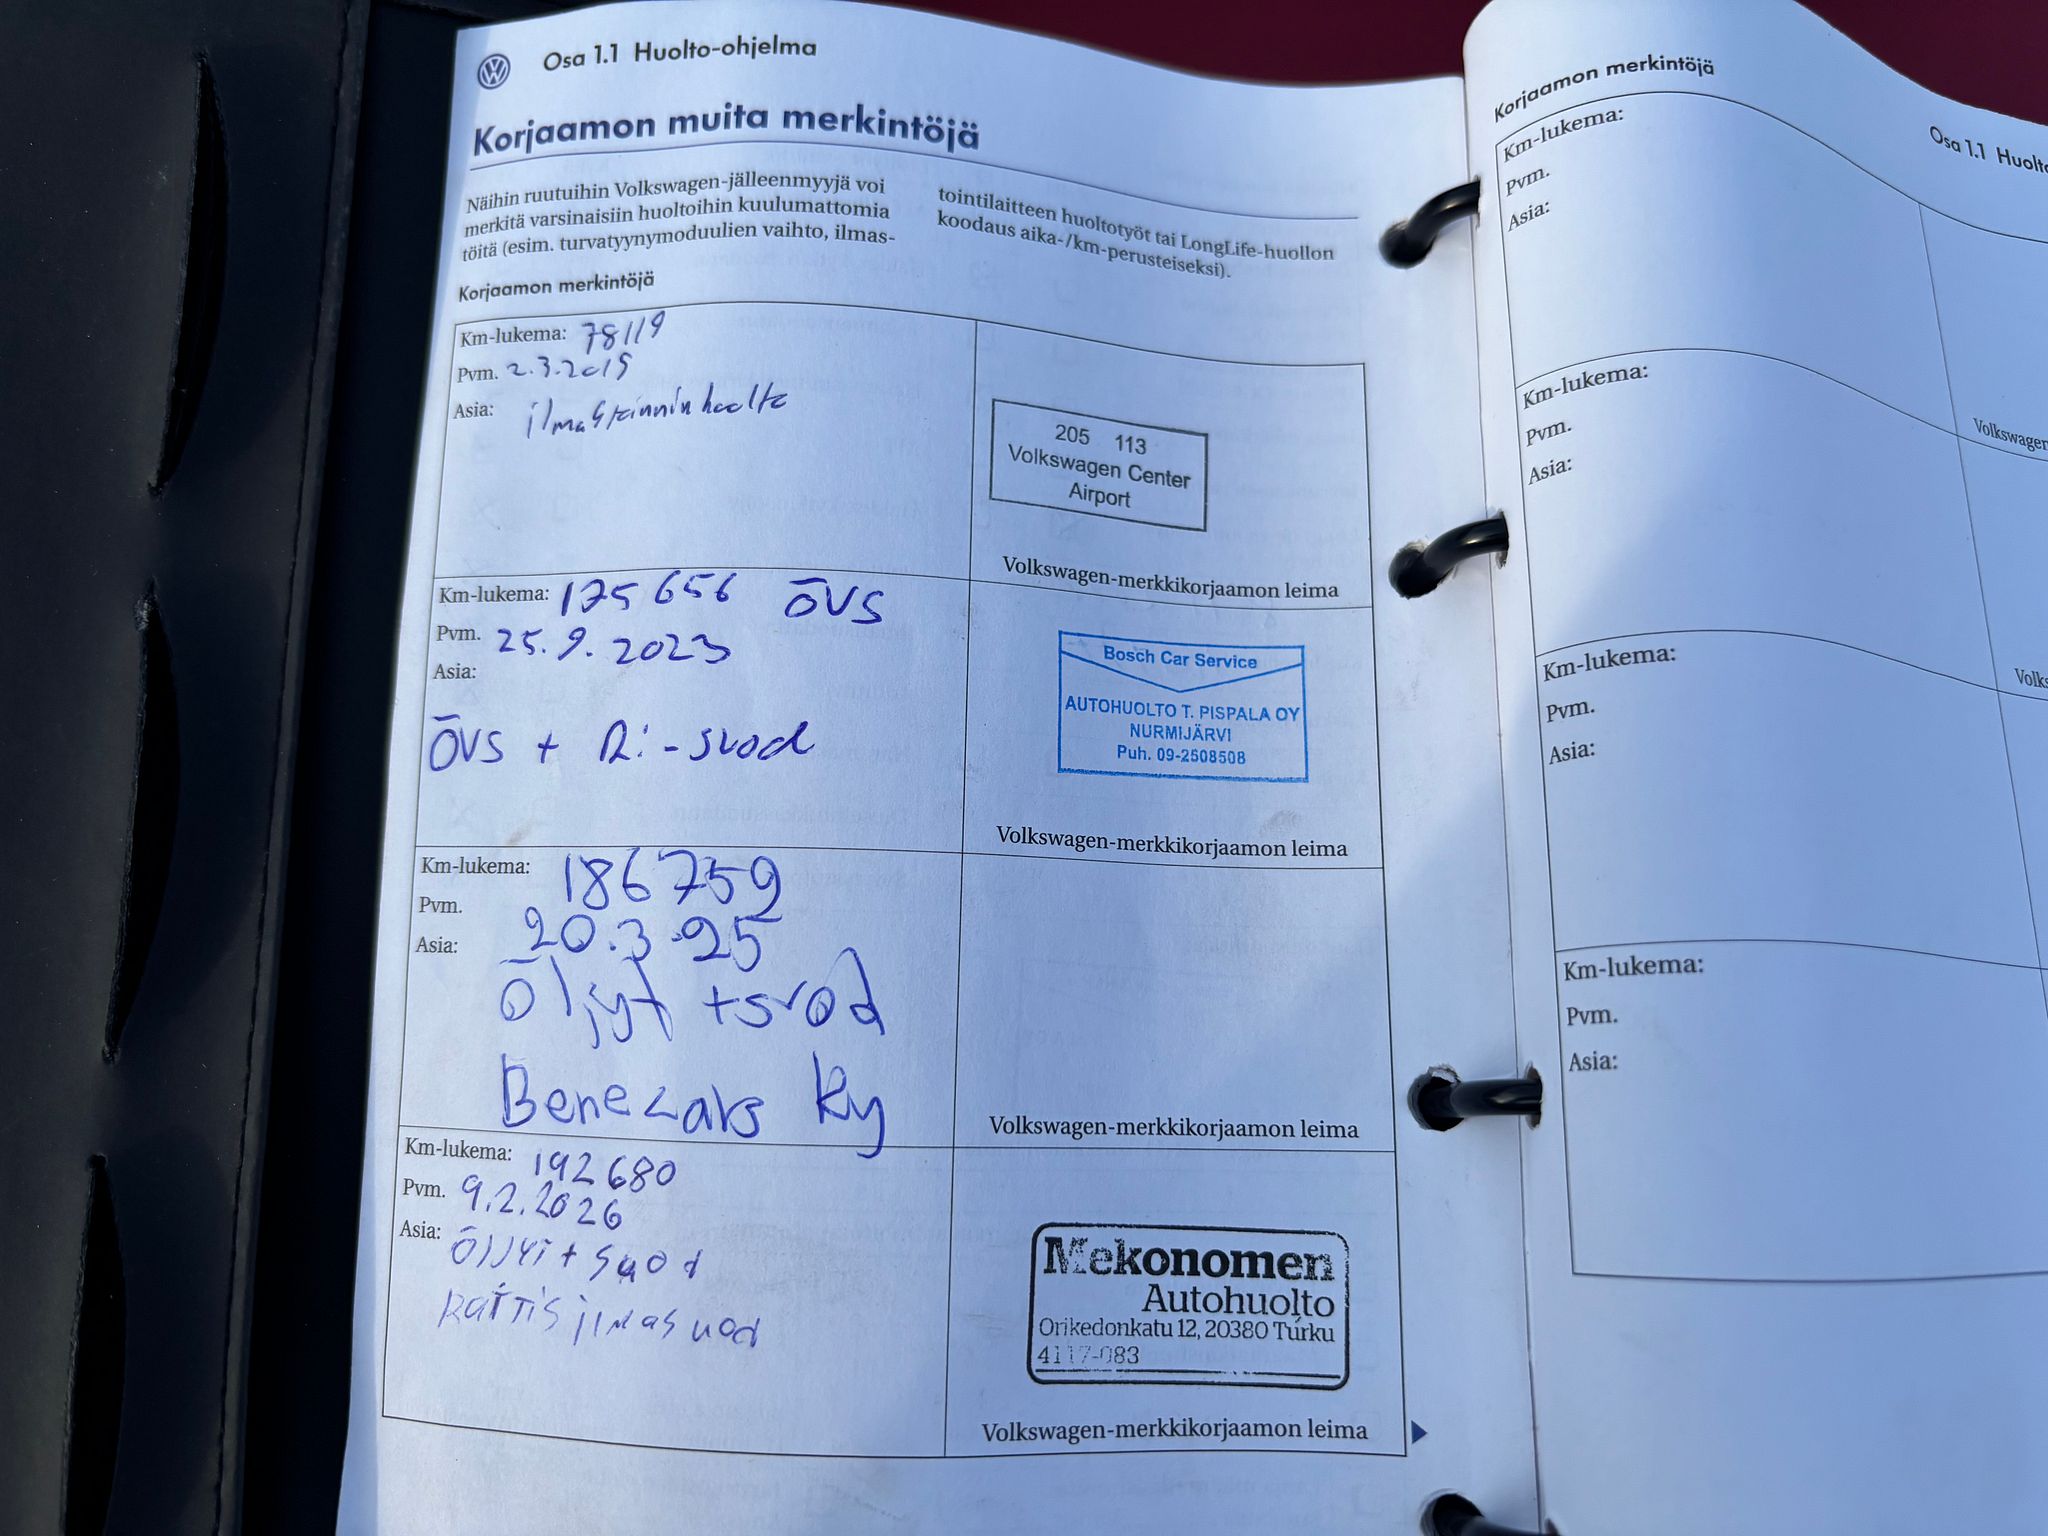 Osa 1.1 Huolto-ohjelma
Korjaamon muita merkintöjä
Näihin ruutuihin Volkswagen-jälleenmyyjä voi
merkitä varsinaisiin huoltoihin kuulumattomia
töitä (esim. turvatyynymoduulien vaihto, ilmas-
tointilaitteen huoltotyöt tai LongLife-huollon
koodaus aika-/km-perusteiseksi).
Korjaamon merkintöjä
Km-lukema: 78119
Pvm. 2.3.2015
Asia: ilmastoinnin huolto
205 113
Volkswagen Center
Airport
Volkswagen-merkkikorjaamon leima
Km-lukema: 175 656 ÖVS
Pvm. 25.9.2023
Asia:
ÖVS + Ri-suod
Bosch Car Service
AUTOHUOLTO T. PISPALA OY
NURMIJÄRVI
Puh. 09-2508508
Volkswagen-merkkikorjaamon leima
Km-lukema: 186759
Pvm. 20.3.25
Asia:
öljyt + suod
Ky
Volkswagen-merkkikorjaamon leima
Km-lukema: 192 680
Pvm. 9.2.2026
Asia: Öljyt + suod
Raitisilmasuod
Mekonomen
Autohuolto
Orikedonkatu 12, 20380 Turku
4117-083
Volkswagen-merkkikorjaamon leima
Korjaamon merkintöjä
Osa 1.1
Km-lukema:
Pvm.
Asia:
Km-lukema:
Pvm.
Asia:
Km-lukema:
Pvm.
Asia:
Km-lukema:
Pvm.
Asia: